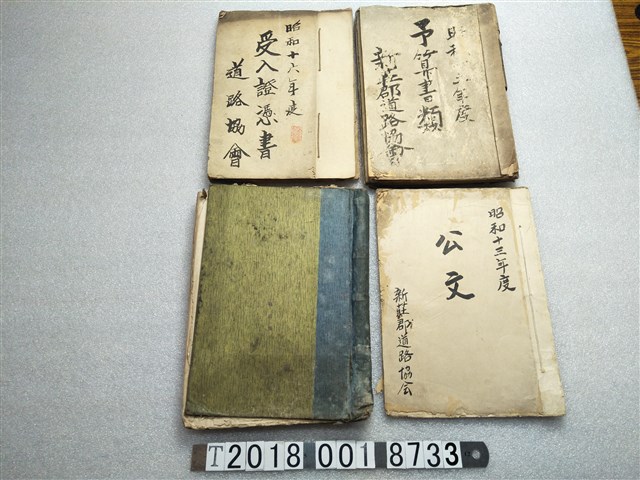 昭和十六年度
受入證憑書
道路協會
昭和 三年度
予算書類
新莊郡道路協會
昭和十三年度
公文
新莊郡道路協会
T 2018 001 8733